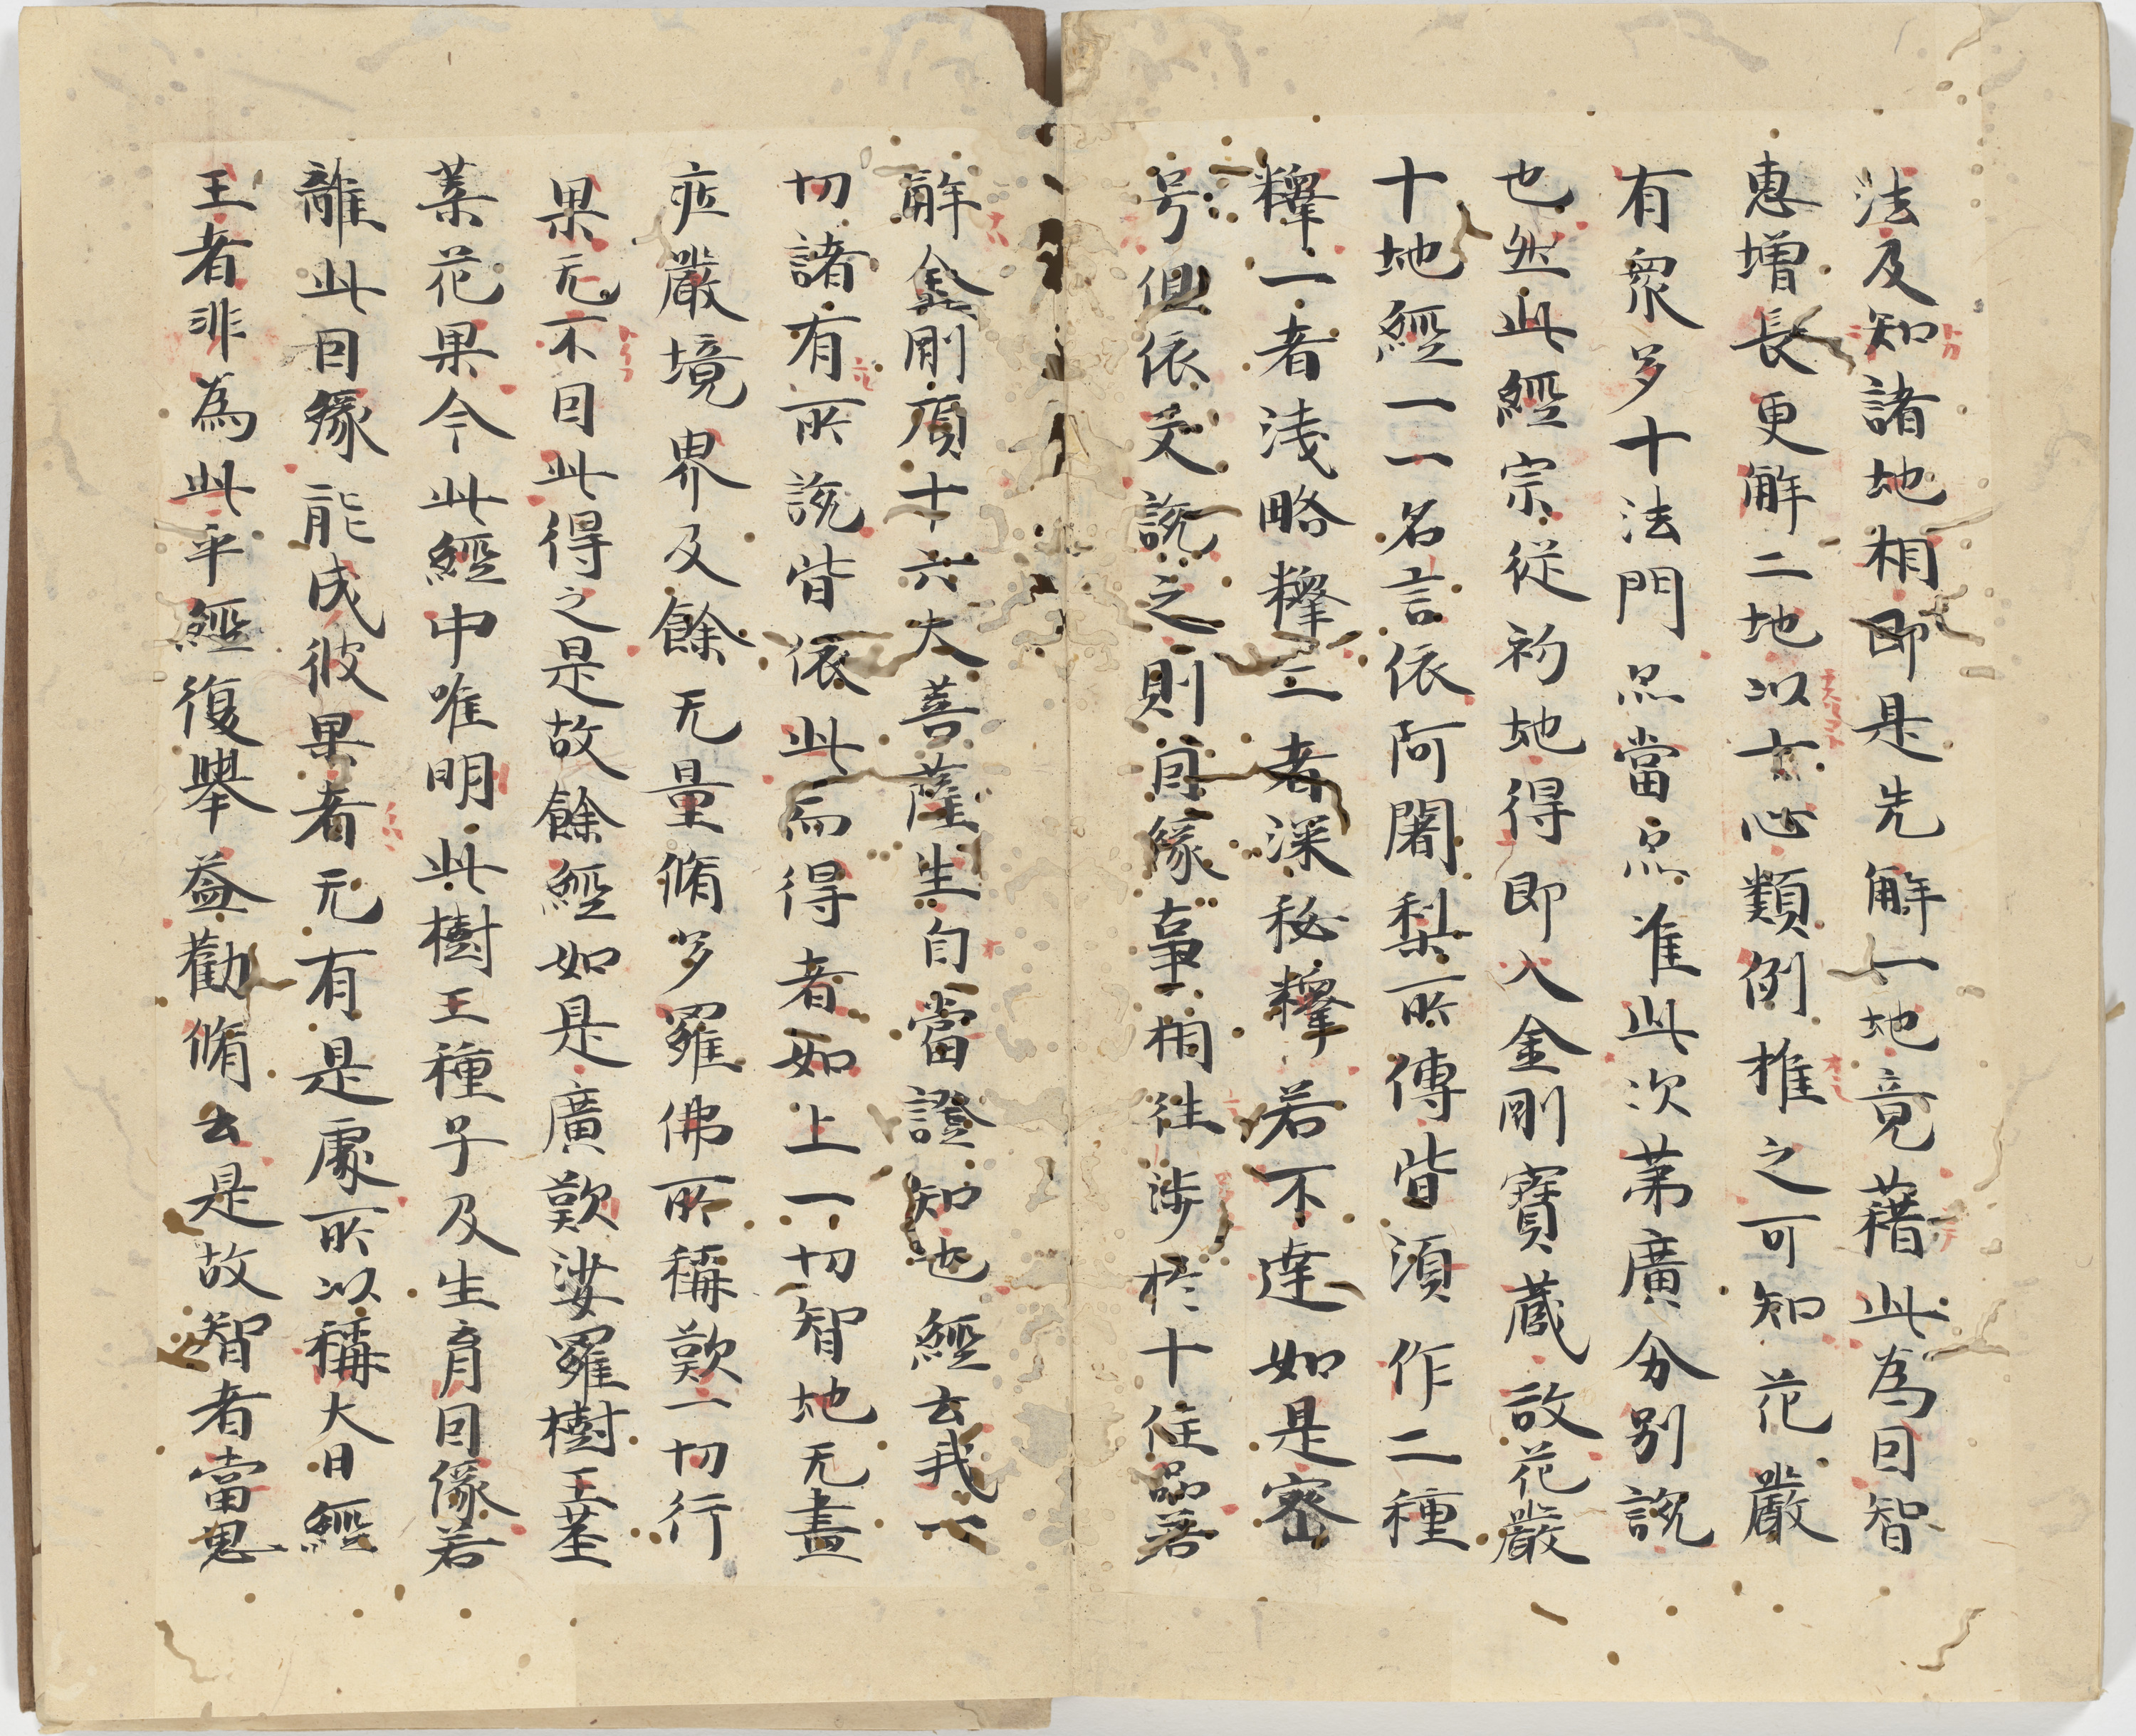 法及知諸地相即是先解一地竟藉此為因智
恵増長更解二地以十心類例推之可知花嚴
有衆多十法門点當点准此次苐廣分別説
也然此經宗従初地得即入金剛寶蔵故花嚴
十地經一一名言依阿闍梨所傳皆須作二種
釋一者浅略釋二者深秘釋若不達如是密
号但依文説之則因縁事相往渉於十住品若
解金剛頂十六大菩薩生自當證知也經云我一
切諸有所説皆依此而得者如上一切智地无盡
莊嚴境界及餘无量脩多羅佛所稱歎一切行
果无不因此得之是故餘經如是廣歎娑羅樹王莖
葉花果今此經中唯明此樹王種子及生育因縁若
離此因縁能成彼果者无有是處所以稱大日經
王者非為此乎經復舉益勸脩云是故智者當思